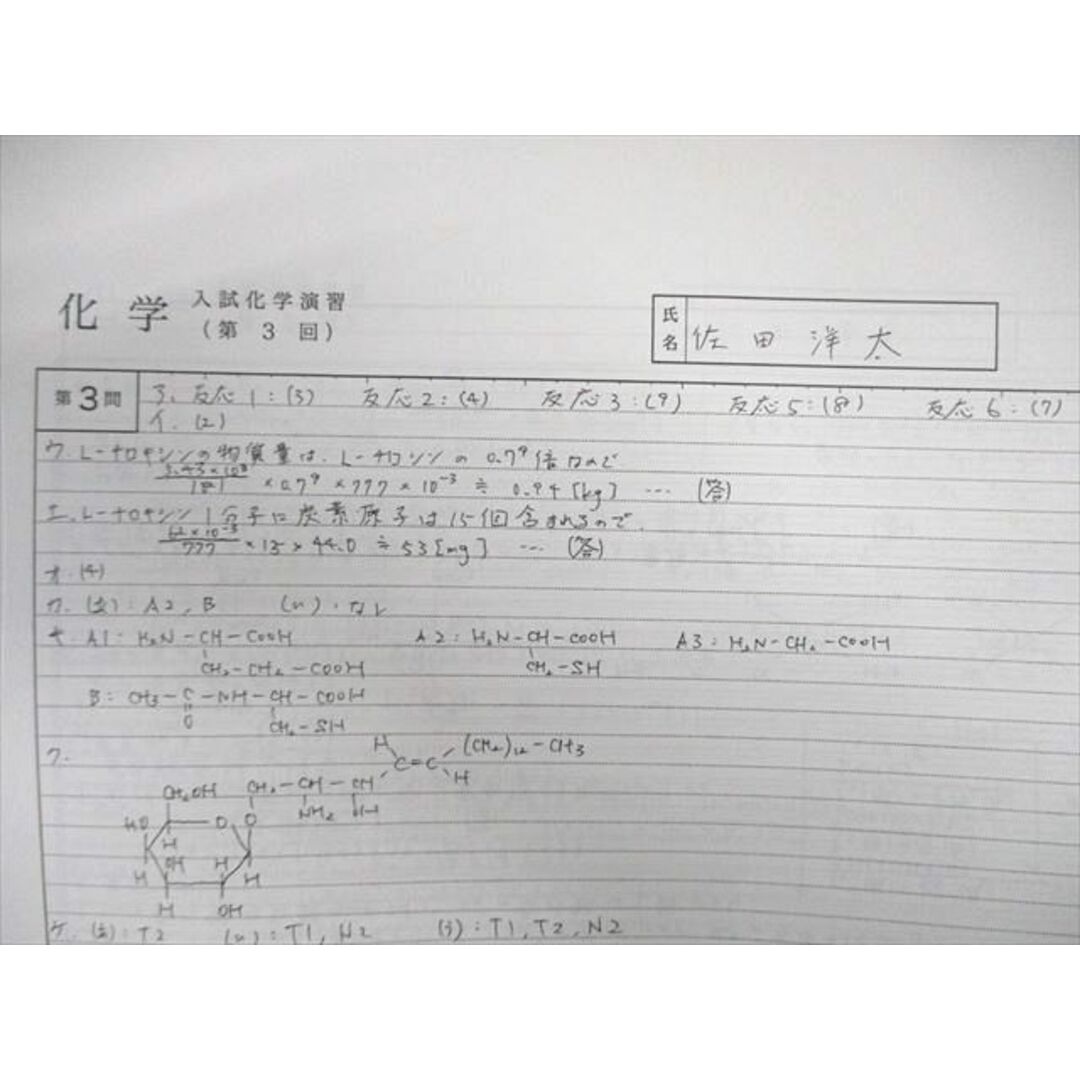 化学 入試化学演習
(第 3 回)
氏名 佐田 洋太
第3問 ア. 反応1:(3) 反応2:(4) 反応3:(9) 反応5:(8) 反応6:(7)
イ. (2)
ウ. L-チロキシンの物質量は、L-チロシンの 0.7⁹倍なので
3.43×10³/181 ×0.7⁹×777×10⁻³ ≒ 0.94[kg] … (答)
エ. L-チロキシン1分子に炭素原子は15個含まれるので、
62×10⁻³/777 ×15×44.0 ≒ 53[mg] … (答)
オ. (4)
カ. : A2, B : なし
キ. A1: H₂N-CH-COOH A2: H₂N-CH-COOH A3: H₂N-CH₂-COOH
CH₂-CH₂-COOH CH₂-SH
B: CH₃-C-NH-CH-COOH
O CH₂-SH
ク.
H (CH₂)₁₂-CH₃
C=C
H
CH₂OH CH₂-CH-CH
NH₂ OH
HO O O
H
OH H
H H
H OH
ケ. : T2 : T1, N2 (う): T1, T2, N2